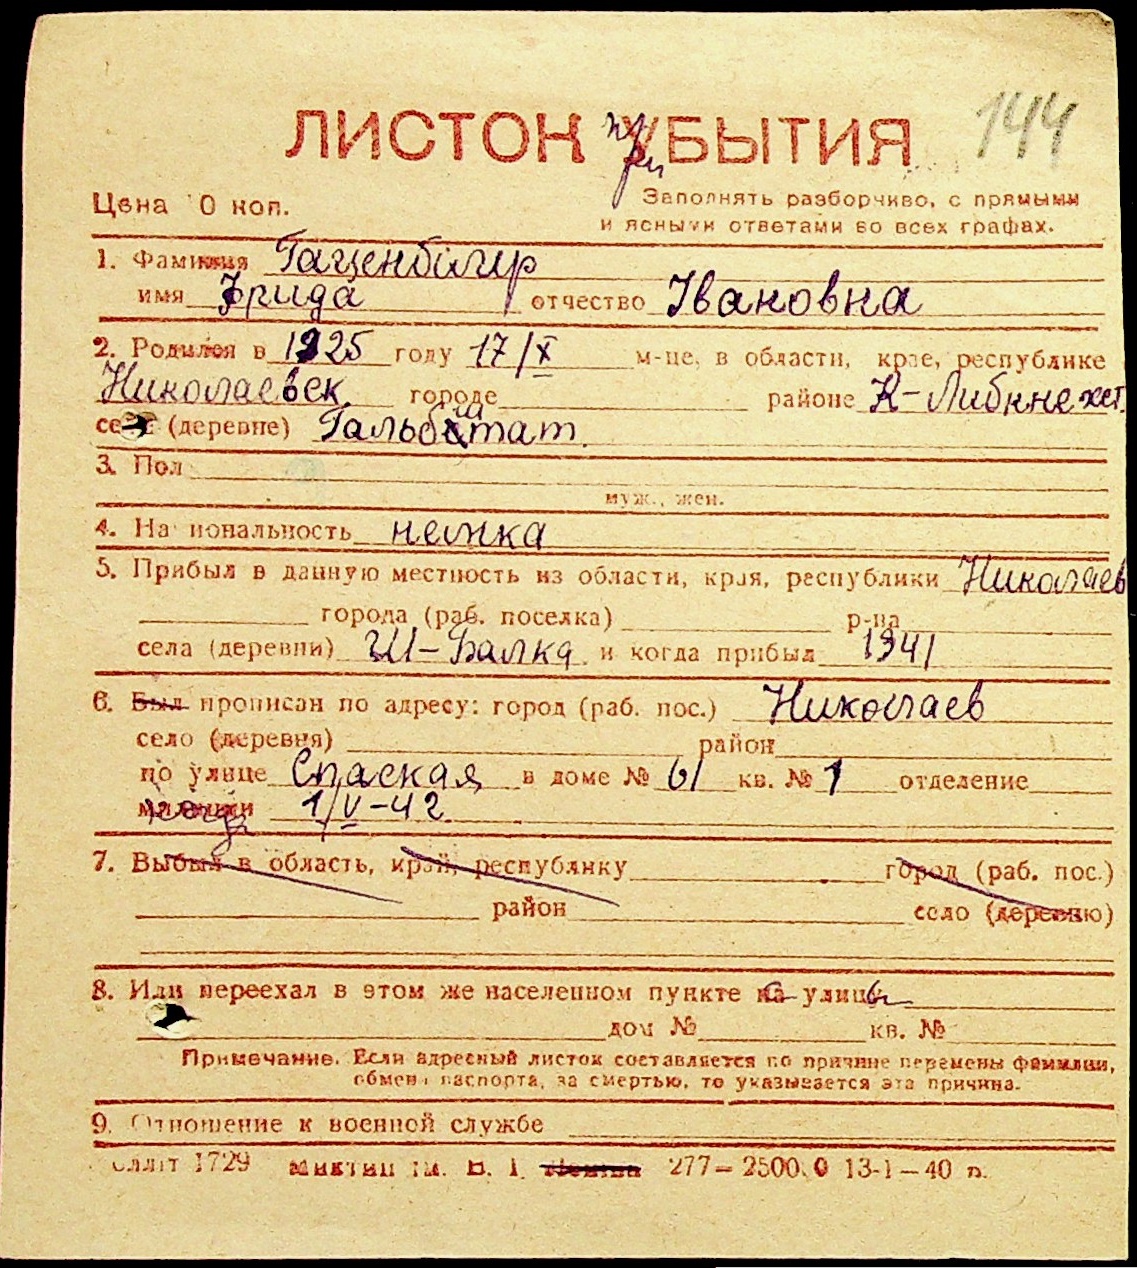 144
ЛИСТОК УБЫТИЯ
при
Цена 0 коп.
Заполнять разборчиво, с прямыми
и ясными ответами во всех графах.
1. Фамилия Гаценбілир
имя Фрида отчество Івановна
2. Родился в 1925 году 17/X м-це, в области, крае, республике
Николаевск городе районе К-Либкнехст.
селе (деревне) Гальбштат
3. Пол
муж., жен.
4. Национальность немка
5. Прибыл в данную местность из области, края, республики Николаев
города (раб. поселка) р-на
села (деревни) Ш-Балка и когда прибыл 1941
6. Был прописан по адресу: город (раб. пос.) Николаев
село (деревня) район
по улице Спаская в доме № 61 кв. № 1 отделение
милиции 1/V-42
7. Выбыл в область, край, республику город (раб. пос.)
район село (деревню)
8. Или переехал в этом же населенном пункте на улицу
дом № кв. №
Примечание. Если адресный листок составляется по причине перемены фамилии,
обмена паспорта, за смертью, то указывается эта причина.
9. Отношение к военной службе
1729 В. І. Леніна 277— 2500 0 13-1—40 р.